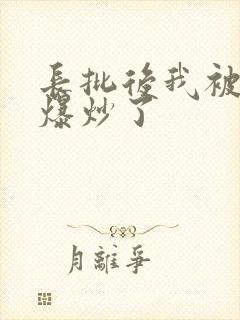 長批後我被
爆炒了
月離爭